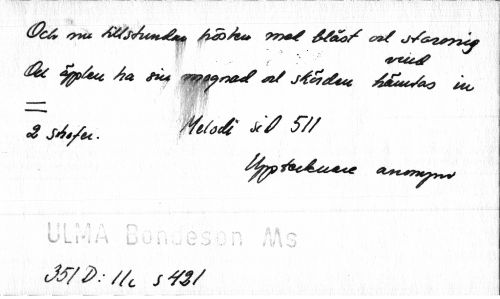 Och nu tillstundar hösten med blåst och stormig
vind
Och äpplen ha sin mognad och skörden hämtas in
=
2 strofer. Melodi sid 511
Upptecknare anonym
ULMA Bondeson Ms
351 D: 11c s 421